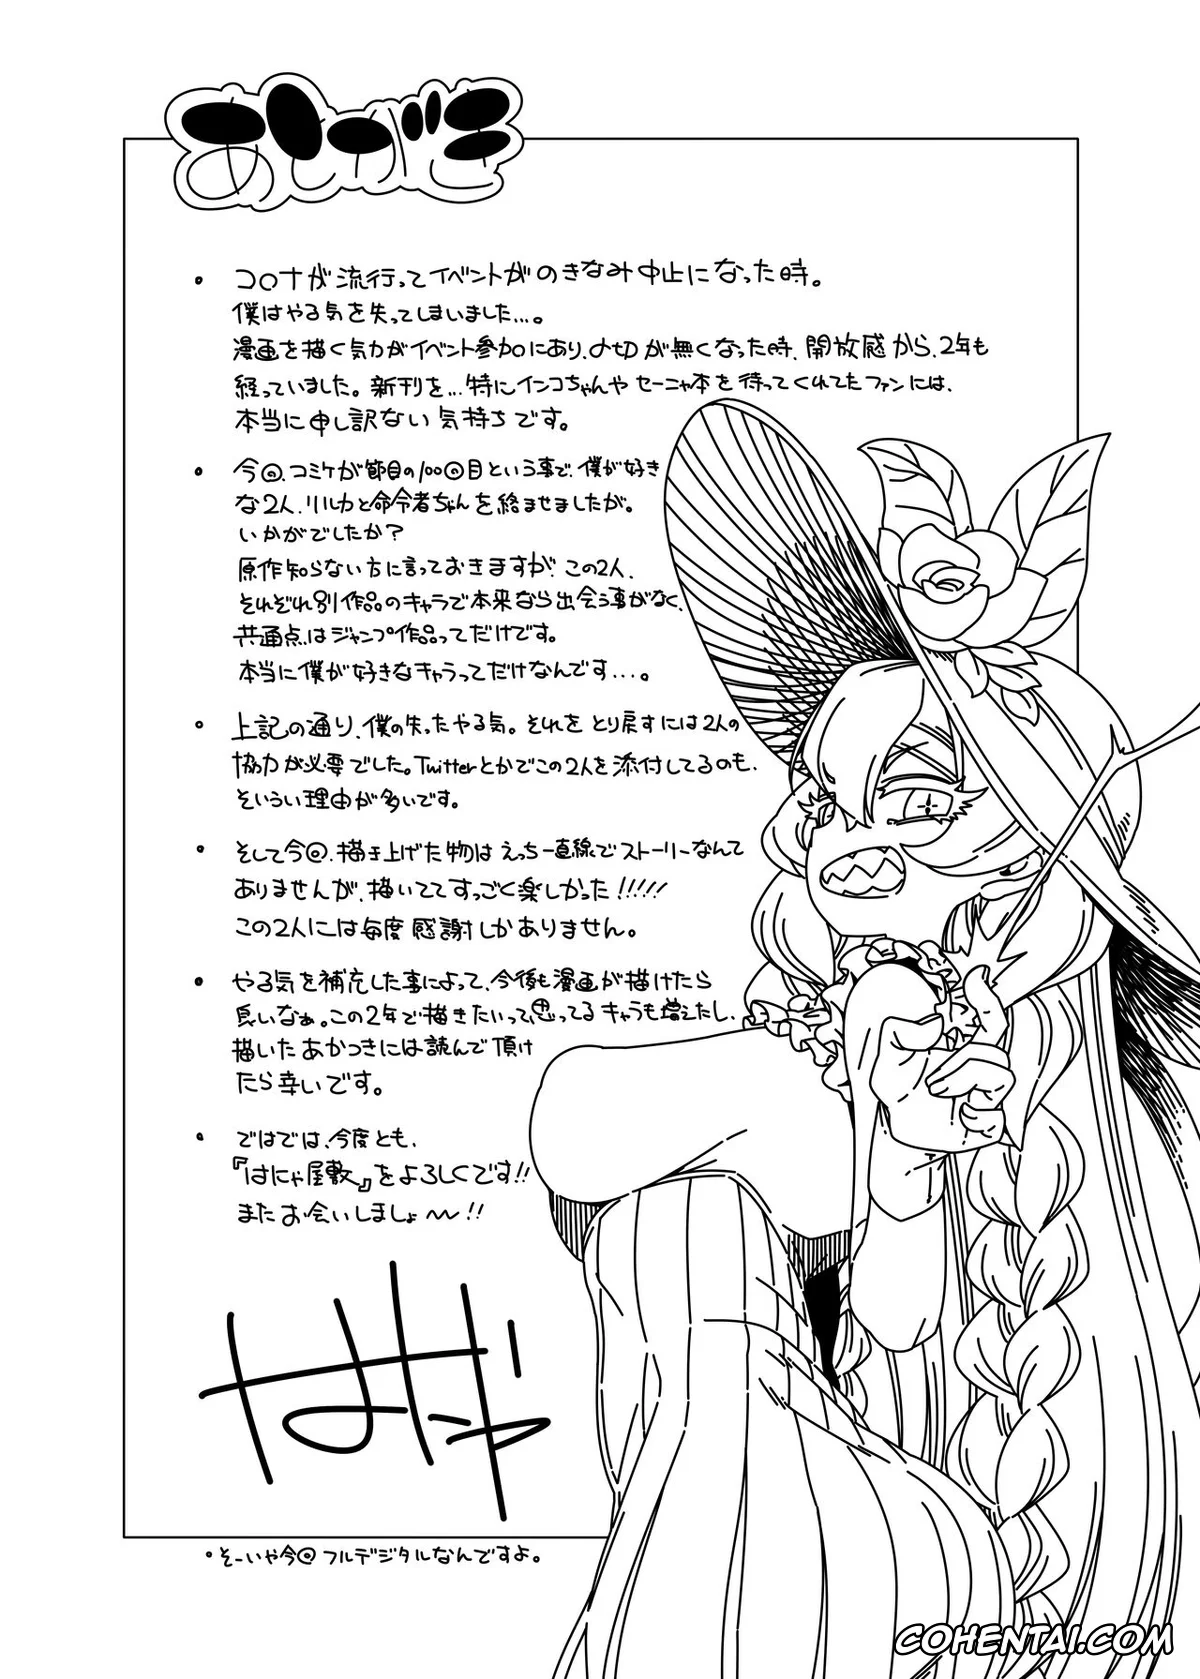 あとがき
・コロナが流行ってイベントがのきなみ中止になった時。
僕はやる気を失ってしまいました…。
漫画を描く気力がイベント参加にあり、〆切が無くなった時、開放感から、2年も
経っていました。新刊を…特にインコちゃんやセーニャ本を待ってくれてたファンには、
本当に申し訳ない気持ちです。
・今回、コミケが節目の100回目という事で、僕が好き
な2人、リルカと命令者ちゃんを絡ませましたが。
いかがでしたか?
原作知らない方に言っておきますが、この2人、
それぞれ別作品のキャラで本来なら出会う事がなく、
共通点はジャンプ作品ってだけです。
本当に僕が好きなキャラってだけなんです…。
・上記の通り、僕の失ったやる気。それをとり戻すには2人の
協力が必要でした。Twitterとかでこの2人を添付してるのも、
そいうい理由が多いです。
・そして今回、描き上げた物はえっち一直線でストーリーなんて
ありませんが、描いててすっごく楽しかった!!!!!
この2人には毎度感謝しかありません。
・やる気を補充した事によって、今後も漫画が描けたら
良いなぁ。この2年で描きたいって思ってるキャラも増えたし、
描いたあかつきには読んで頂け
たら幸いです。
・ではでは、今度とも、
『はにゃ屋敷』をよろしくです!!
またお会いしましょ〜!!
はにゃ
・そーいや今回フルデジタルなんですよ。
COHENTAI.COM